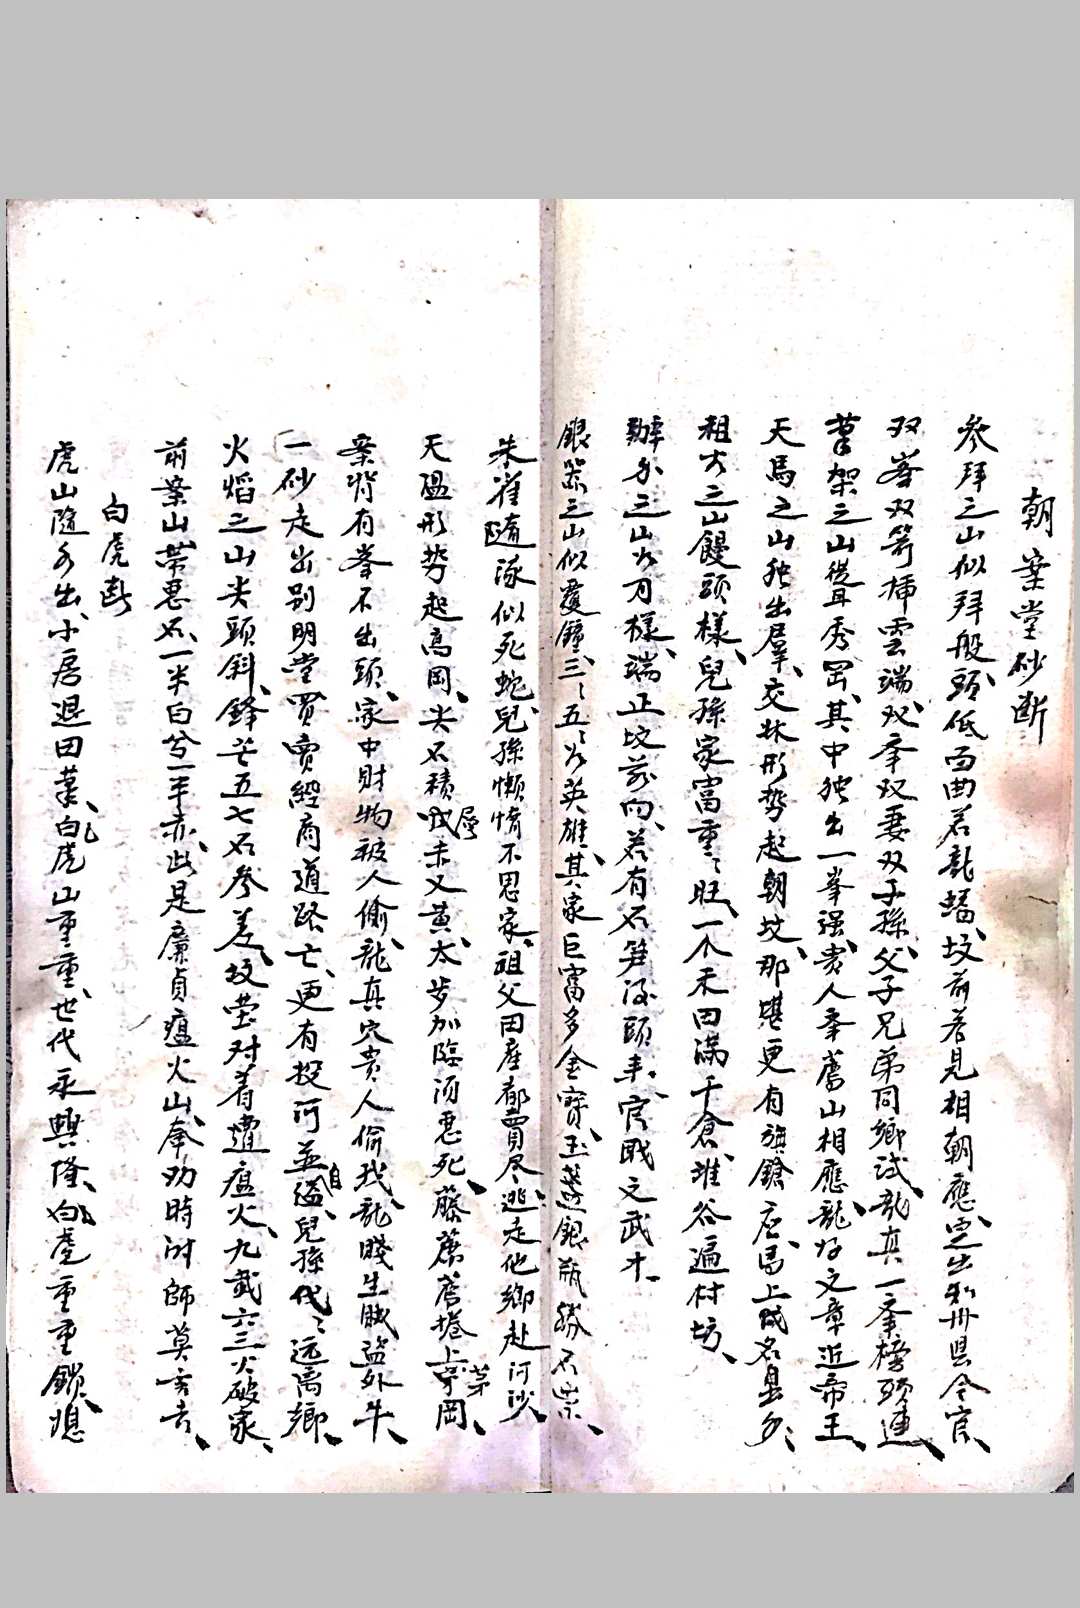 朝案堂砂断
参拜之山似拜般、頭低而曲若龍蟠、坟前若見相朝應、定出知州县令官、
双峯双笋插雲端、双峯双妻双子孫、父子兄弟同鄉試、龍真一峯榜頭連、
筆架之山聳秀罡、其中独出一峯强、貴人峯薦山相應、龍好文章近帝王、
天馬之山独出羣、交牀形势起朝坟、那堪更有旗鎗应、馬上威名皇外、
粗大之山饅頭樣、兒孫家富重重旺、一个禾田满千倉、堆谷遍村坊、
辦外之山如刀樣、端正坟前向、若有石笋没頭来、官职文武才、
銀笏之山似覆鐘、三三五五為英雄、其家巨富多金寶、玉盞銀瓶勝石崇、
朱雀隨流似死蛇、兒孫懒惰不思家、祖父田産都賣尽、逃走他鄉赴河沙、
天温形势起高岡、尖石積层未又黄、太歩加臨须悪死、藤蔴捲上茅岡、
案背有峯不出頭、家中財物被人偷、龍真穴贵人偷我、龍賤生賊盗外牛、
一砂走出别明堂、買賣經商道路亡、更有投河並自縊、兒孫代代远离鄉、
火熖之山尖頭斜、鋒芒五七石参差、坟塋对着遭瘟火、九武六三火破家、
前案山带悪石、一半白兮一半赤、此是廉貞瘟火山、奉劝時師莫言吉、
白虎断
虎山隨水出、小房退田業、白虎山重重、世代永興隆、白虎重重鎖、總